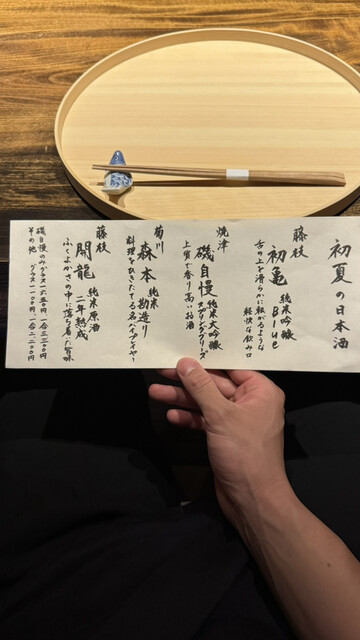 初夏の日本酒
藤枝
初亀 純米吟醸 Blue
舌の上を滑らかに転がるような
軽快な飲み口
焼津
磯自慢 純米大吟醸
スプリングブリーズ
上質で香り高いお酒
菊川
森本 純米 勘造り
料理をひきたてる名ハイプレイヤー
藤枝
開龍 純米原酒 二年熟成
ふくよかさの中に落ち着いた旨味
磯自慢のみグラス一六五〇円、一合三三〇〇円
その他 グラス一一〇〇円、一合二二〇〇円